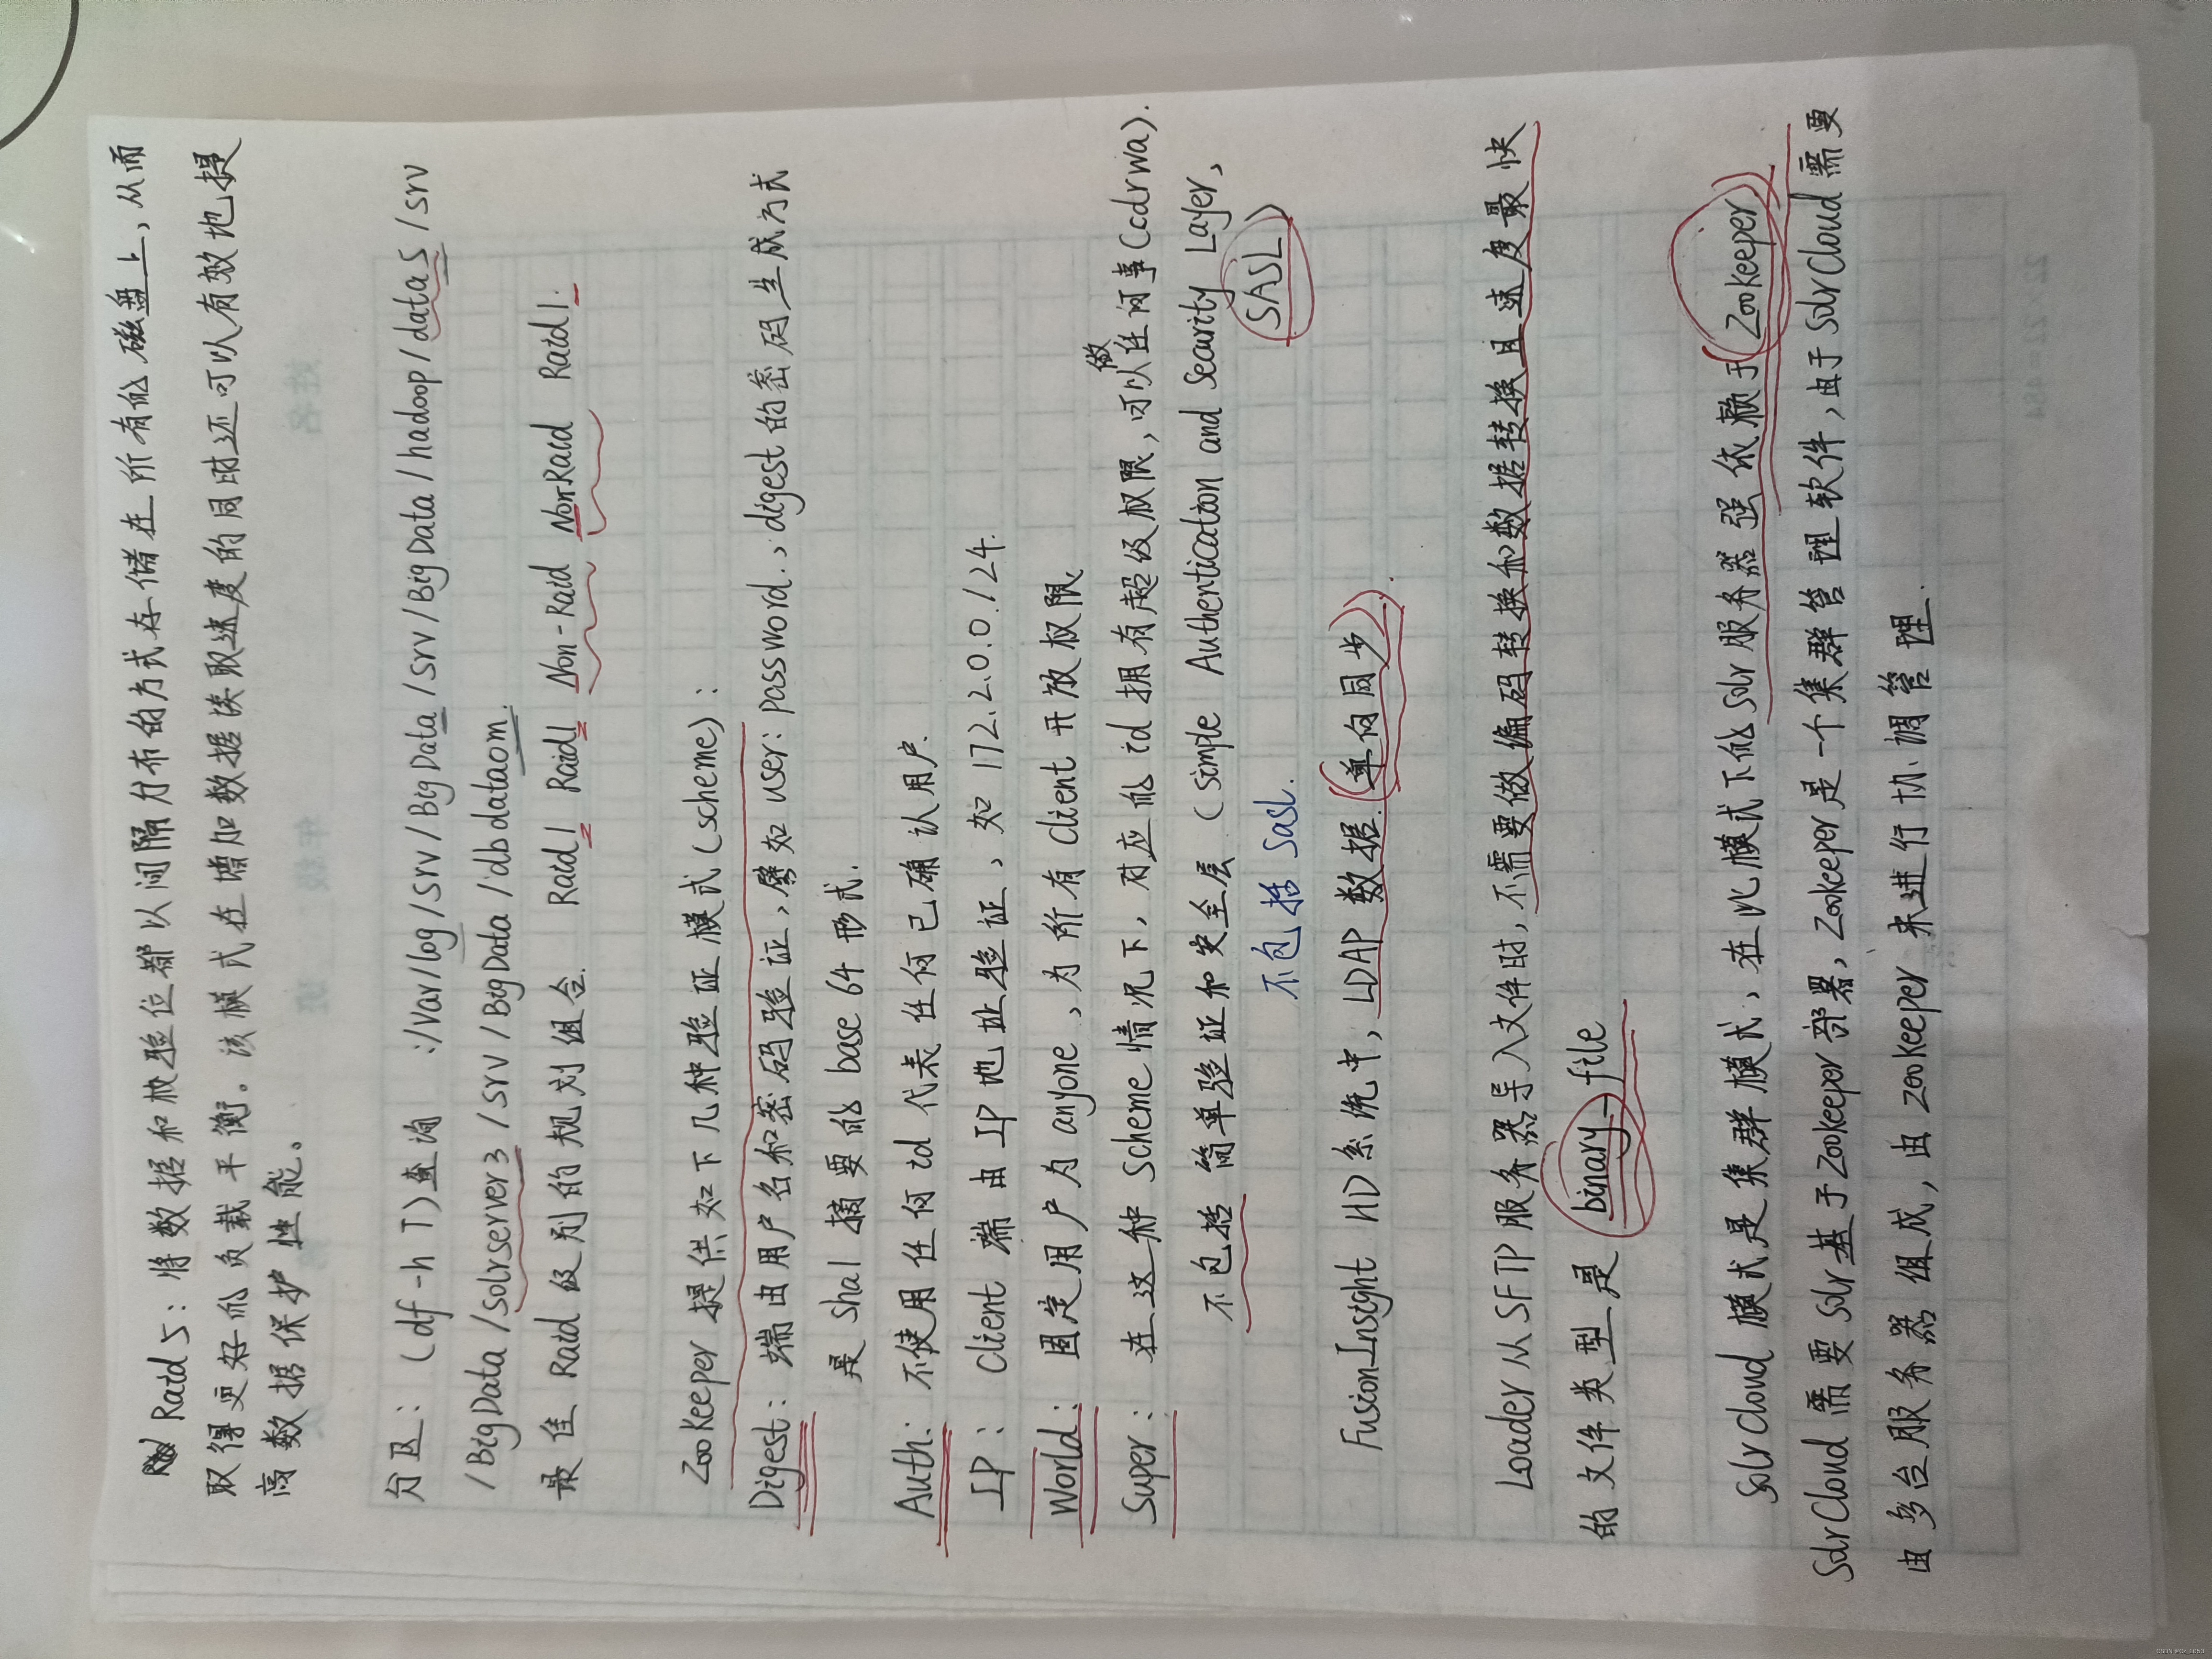 Raid 5：将数据和校验位都以间隔分布的方式存储在所有的磁盘上，从而
取得更好的负载平衡。该模式在增加数据读取速度的同时还可以有效地提
高数据保护性能。
分区：(df -h T)查询 :/var/log/srv/BigData/srv/BigData/hadoop/data5/srv
/BigData/solrserver3/srv/BigData/dbdataom.
最佳Raid级别的规划组合. Raid1 Raid1 Non-Raid Non-Raid Raid1.
ZooKeeper提供如下几种验证模式(scheme)：
Digest：端由用户名和密码验证，譬如user:password.，digest的密码生成方式
是Sha1摘要的base64形式.
Auth：不使用任何id代表任何已确认用户.
IP：Client端由IP地址验证，如172.2.0.0/24.
World：固定用户为anyone，为所有Client开放权限
做
Super：在这种Scheme情况下，对应的id拥有超级权限，可以任何事Ccdrwa).
不包括简单验证和安全层(simple Authentication and Security Layer，
SASL)
不包括Sasl.
FusionInsight HD系统中，LDAP数据.(单向同步).
Loader从SFTP服务器导入文件时，不需要做编码转换和数据转换且速度最快
的文件类型是binary-file
SolrCloud模式是集群模式，在此模式下的Solr服务器强依赖于(Zookeeper)
SolrCloud需要Solr基于Zookeeper部署，Zookeeper是一个集群管理软件，由于SolrCloud需要
由多台服务器组成，由zookeeper来进行协调管理.
姓名
年级
班
22×22=484
CSDN @CY_1053